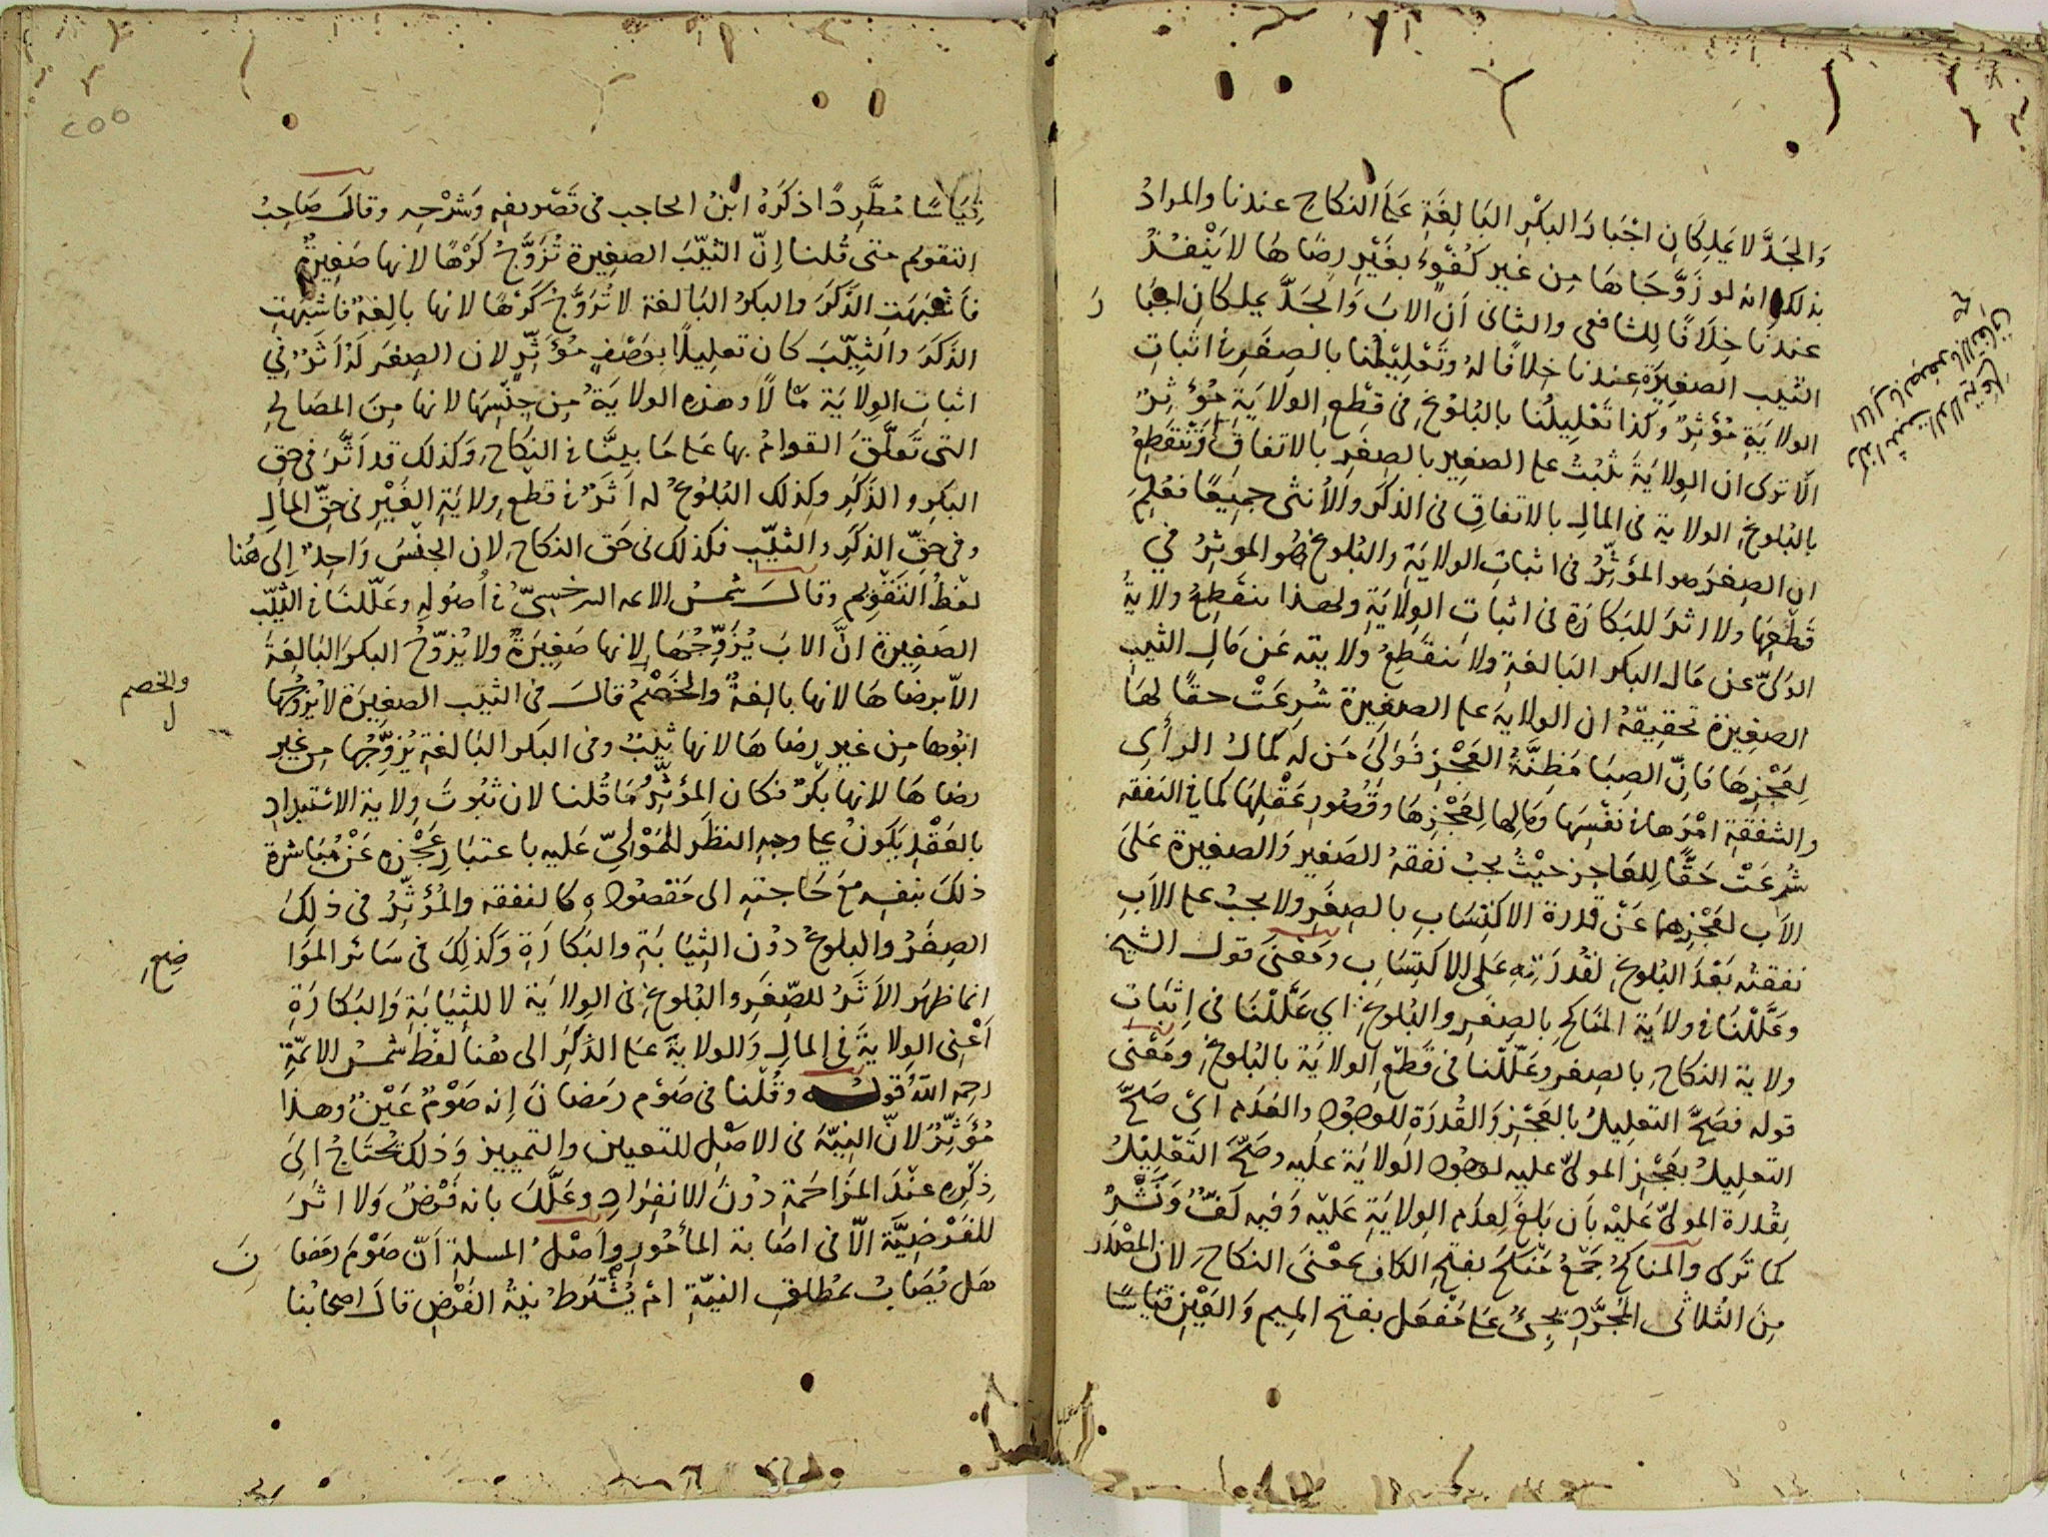 وَالجَدَّ لا يَملِكَانِ اجْبَارَ البكْرِ البَالِغَةِ عَلَى النكاح عندنا والمرادُ
بذلك انه لو زَوَّجَاهَا مِن غير كُفْوٍء بغَيْرِ رِضَاهَا لا يَنْفُذُ
عندنا خِلَافًا لِلشافعى والثانى اَنّ الابَ وَالجَدَّ يملكانِ اجبَا
رَ
الثيب الصغيرَة عِندنا خِلافًا لهُ وتَعْلِيْلُنا بالصِغَرِ فى اثباتِ
الولايَةِ مُؤثِرٌ وكذا تَعْلِيلُنا بالبُلوُغِ فى قطعِ الولايَة مُؤثِرٌ
الَا ترى ان الوِلايَةَ تثبُتُ على الصغيرِ بالصِغرِ بالاتفاقِ وَتنْقَطِعُ
بالبُلوغِ الولاية فى المالِ بالاتفاقِ فى الذكَرِ وَالاُنثى جميعًا فعُلِمَ
ان الصِغَرَ هو المؤثِّرُ فى اثباتِ الولايَةِ والبُلوغُ هُو الموثِرُ في
قَطْعِهَا ولا اثرَ للبَكارَة فى اثبات الوِلَايَةِ ولهذا ينقَطِعُ ولايةُ
الوَلىّ عن مَال البكر البَالغةِ ولا ينقَطِعُ ولايته عَن مَالِ الثيبِ
الصغيرَة تحقيقهُ ان الولايةَ على الصغيرة شُرِعَتْ حقًا لهَا
لِعَجْزِهَا فَانّ الصِبَا مَظِنَّةُ العَجْزِ فَوَلىَ مَن له كمالُ الرأىِ
والشفقةِ امْرَها فى نفْسِهَا ومَالِها لِعَجْزِهَا وقُصُورِ عَقْلِهَا كما فى النفقه
شُرِعَتْ حَقًّا لِلعَاجِزِ حيْثُ يجبُ نفقهُ الصَغير وَالصغيرة عَلىَ
الاَبِ لعَجْزِهِمَا عَنْ قدرة الاكتِسَابِ بالصِغَرِ ولا يجبُ على الاَبِ
نفقتُه بَعْدَ البُلوغِ لقُدرَتِه عَلى الاكتِسَابِ ومَعْنىَ قول الشيخ
وعَلَّلْنا فى ولايَة المنَاكحِ بالصِغَرِ والبُلوغِ اي عَلَّلْنَا فى اِثبَات
ولايَة النكاحِ بالصِغر وعَلّلْنا فى قَطْعِ الولايَة بالبُلوغِ ومَعْنى
قوله فصَحّ التعليلُ بالعَجْزِ وَالقُدرَةِ للوجُوْدِ والعَدَمِ اىْ صَحَّ
التعليلُ بعَجْزِ المولىّ عليه لوجُودِ الوِلايَة عليه وصَحّ التَعْلِيْلُ
بقُدرة المولىّ عَليْهِ بأن بَلغَ لِعدَمِ الولايَةِ عَليْه وَفيه لَفٌّ وَنَشْرٌ
كما تَرى والمناكحُ جَمْعُ مَنْكَحٍ بفتحِ الكاف بمعْنىَ النكاحِ لانّ المصْدَر
مِنَ الثُلاثى المُجَرَّدِ يَجِىْءُ عَلى مَفْعَل بفتح الميم وَالعَيْنِ قيَاسًا
وكذا تثبت الولاية على
المال بالصغر بالاتفاق
صح
قِيَاسًا مُطَّرِدًا ذكَرَهُ ابنُ الحاجب فى تَصْريفِهِ وَشرْحِه وقالَ صَاحِبُ
التقويم حتى قُلنا اِنّ الثيّبَ الصغيرة تُزَوَّجُ كَرْهًا لانها صَغيرَةٌ
فاَشْبَهَتِ الذَكَرَ والبكرُ البَالغة لا تُزَوَّج كَرْهًا لانها بالِغةٌ فاشبَهَتِ
الذكَرَ والثيّبَ كان تعليلًا بوَصْفٍ مُؤثِّرٍ لان الصِغرَ له اَثرٌ في
اثباتِ الولايَة مَالًا وهذه الولايَةُ مِن جِنْسِهَا لانها مِنَ المصَالحِ
التى تَعلّقَ القوامُ بها عَلى مَا بيّنّا فى النكاحِ وَكذلك قد اَثّرَ فى حق
البكر والذَكَرِ وكذلك البُلوُغُ له اَثرٌ فى قطعِ وِلايَةِ الغَيْرِ فى حقِّ المالِ
وفى حقِّ الذكَرِ والثيّبِ فكذلك فى حَق النكاحِ لان الجنْسَ وَاحِدٌ اِلى هُنا
لفظُ التَقوِيم وقال شمسُ الائمه السرخسِىّ فى اُصُولِهِ وعَلّلنَا فى الثيّب
الصَغِيرَة انَّ الابَ يُزَوِّجُهَا لانها صَغِيرَةٌ ولا يُزوّجُ البكرَ البَالِغَةَ
الاّ برضاهَا لانها بالِغةٌ والخَصْمُ قالَ فى الثيّب الصغيرَة لا يُزوّجُهَا
والخصم
ل
ابُوها مِن غير رِضاهَا لانها ثيّبٌ وفى البكر البَالغةِ يُزوِّجُها مِن غير
رضاهَا لانها بكرٌ فكان المؤثِّرُ مَا قُلنا لان ثبُوتَ وِلاية الاستبدادِ
بالعَقْدِ يَكونُ على وجهِ النظَر للمَوْلىّ عَليه باعتبَارِ عَجْزِه عَنْ مُبَاشرة
ذلكَ بنفسِه مَعَ حَاجتِه الى مَقصُودِهِ كالنفقه والمُؤثّرُ فى ذلِكَ
الصِغَرُ والبلوغُ دوُن الثِيَابَةِ والبَكارَةِ وَكذلِكَ فى سَائر الموَا
ضِعِ
انما ظهَر الاَثَرُ للصِّغَرِ والبُلوغِ فى الوِلايَة لا للثِيَابَةِ وَالبَكارَةِ
اَعْنِى الوِلايَةَ فى المالِ وَالولايَةَ عَلى الذكَرِ الى هُنا لفْظ شمسُ الائمّةِ
رحمه اللهُ قولُه وقُلْنا فى صَوْم رَمَضانَ اِنه صَوْمٌ عَيْنٌ وهذا
مُؤثِّرٌ لانّ النِيّةَ فى الاصْلِ للتعيين والتمييزِ وَذلك يُحْتَاجُ اِلىَ
ذِكْرِه عنْدَ المزَاحَمةِ دوُنَ الانفِرَادِ وعَلّلَ بانه فَرْضٌ وَلا اثرَ
للفَرْضِيَّة الاّ فى اصَابة المأمُورِ واَصْلُ المسلةِ اَنّ صَوْمَ رَمَضا
نَ
هَل يُصَابُ بمُطلَقِ النيّةِ امْ يُشْتَرطُ نيةُ الفَرْضِ قالَ اصحابُنا
٢٥٥